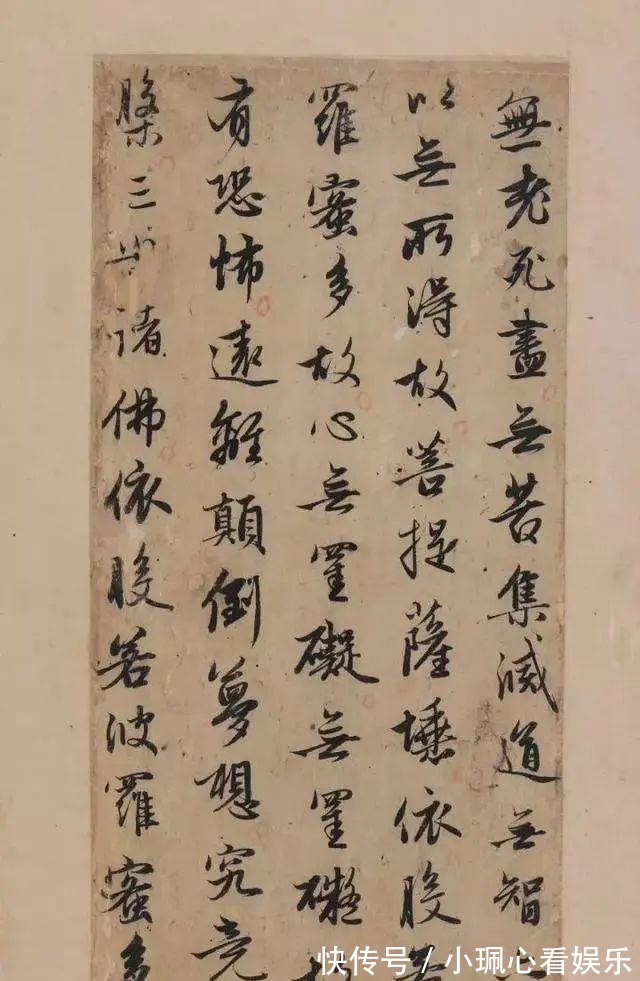 無老死盡无苦集滅道无智
以无所得故菩提薩埵依般若
羅蜜多故心无罣礙无罣礙故
有恐怖遠離顛倒夢想究竟
槃三世諸佛依般若波羅蜜多
快传号/小珮心看娱乐